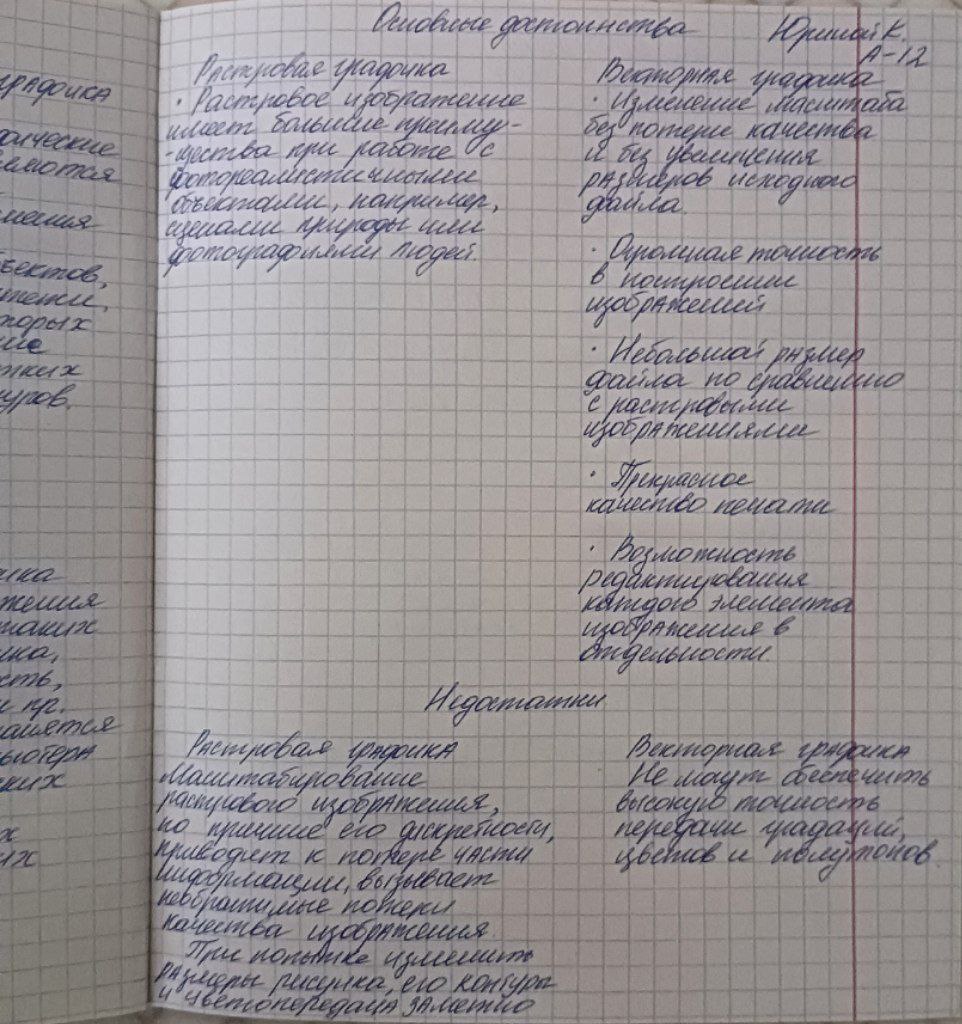 графика
ические
ъектов,
торых
тких
ика
жения
таких
ика,
сть,
и пр.
ских
х
их
Основные достоинства
К.
А-12
Растровая графика
· Растровое изображение
имеет большие преиму-
-щества при работе с
фотореалистичными
объектами, например,
сценами природы или
фотографиями людей.
Векторная графика
· Изменение масштаба
без потери качества
и без увеличения
размеров исходного
файла.
· Огромная точность
в построении
изображений
· Небольшой размер
файла по сравнению
с растровыми
изображениями
· Прекрасное
качество печати
· Возможность
редактирования
каждого элемента
изображения в
отдельности.
Недостатки
Растровая графика
Масштабирование
растрового изображения,
по причине его дискретности,
приводит к потере части
информации, вызывает
необратимые потери
качества изображения.
При попытке изменить
размеры рисунка, его контура
и цветопередача заметно
Векторная графика
Не могут обеспечить
высокую точность
передачи градаций,
цветов и полутонов.